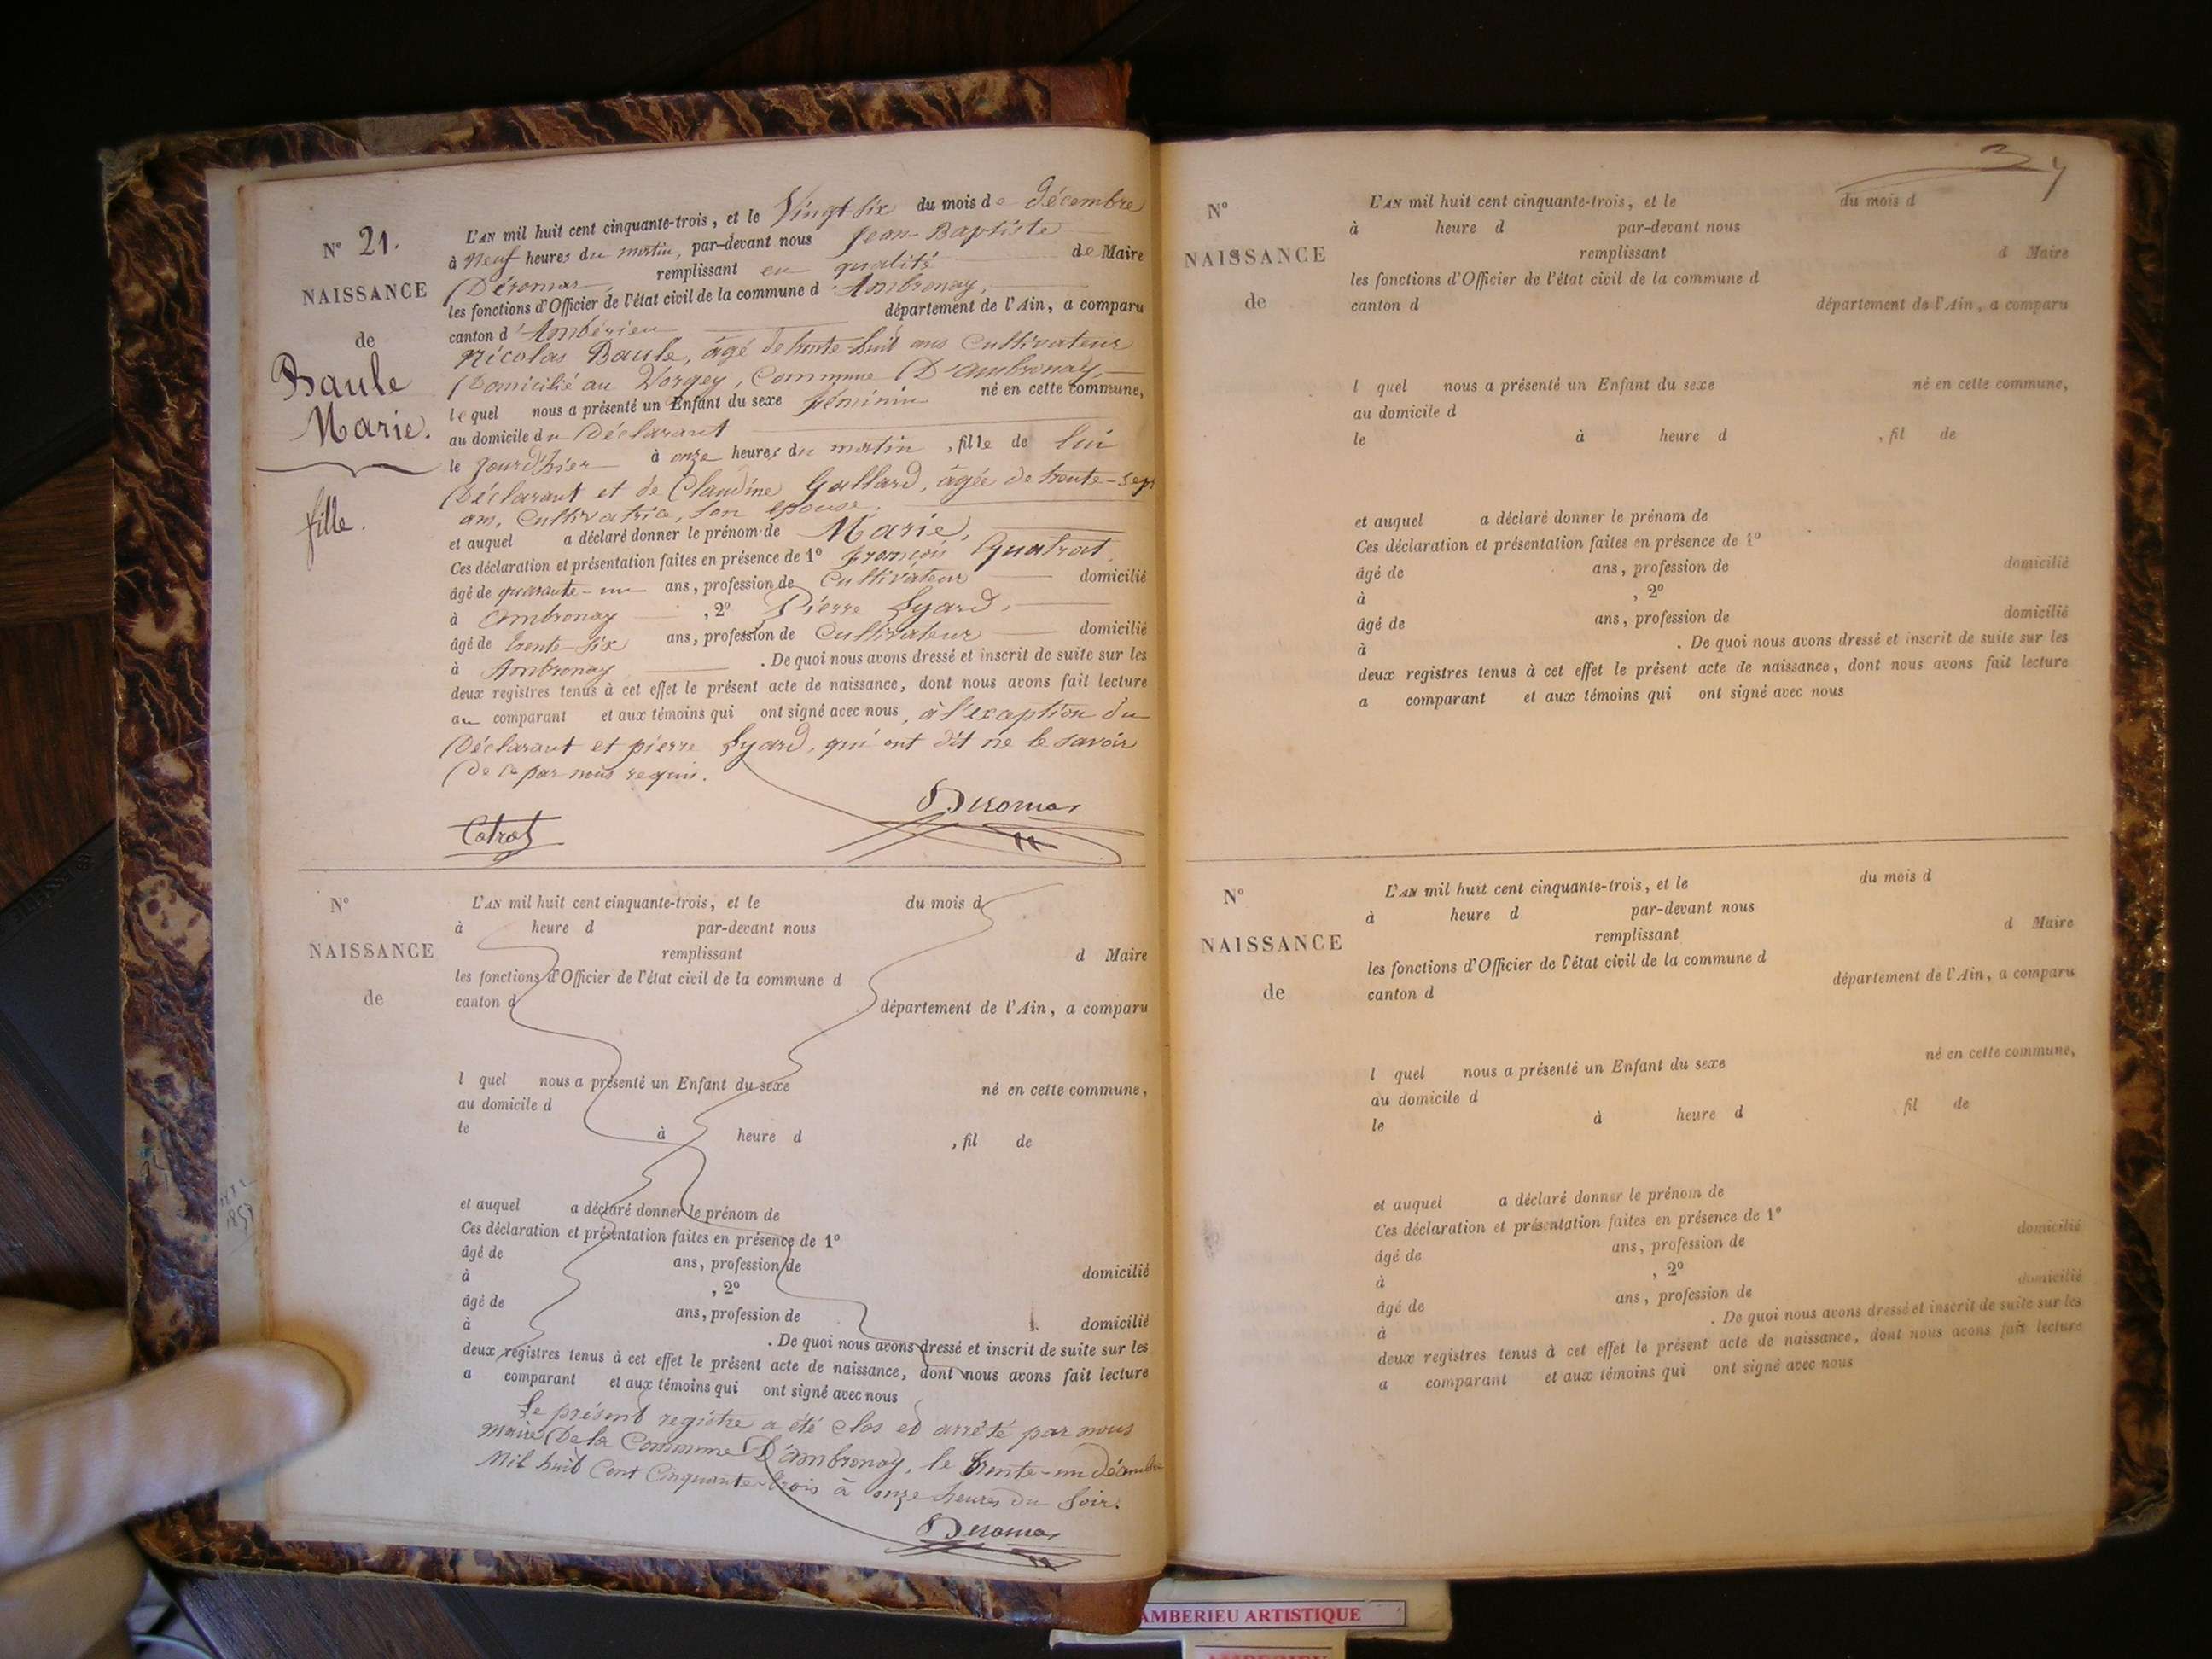 N° 21.
NAISSANCE
de
Baule
Marie.
fille.
L'AN mil huit cent cinquante-trois, et le Vingt six du mois de Décembre
à Neuf heures du matin, par-devant nous Jean Baptiste
Déromas, remplissant en qualité de Maire
les fonctions d'Officier de l'état civil de la commune d'Ambronay,
canton d'Ambérieu département de l'Ain, a comparu
Nicolas Baule, âgé de trente-huit ans Cultivateur
Domicilié au Vorgey, Commune D'ambronay,
lequel nous a présenté un Enfant du sexe féminin né en cette commune,
au domicile du Déclarant
le jourd'hier à onze heures du matin, fille de lui
Déclarant et de Claudine Gallard, âgée de trente-sept
ans, Cultivatrice, son épouse,
et auquel a déclaré donner le prénom de Marie,
Ces déclaration et présentation faites en présence de 1° françois
âgé de quarante-un ans, profession de Cultivateur domicilié
à Ambronay, 2° Pierre Lyard,
âgé de trente-six ans, profession de Cultivateur domicilié
à Ambronay. De quoi nous avons dressé et inscrit de suite sur les
deux registres tenus à cet effet le présent acte de naissance, dont nous avons fait lecture
au comparant et aux témoins qui ont signé avec nous, à l'exception du
Déclarant et pierre Lyard, qui ont dit ne le savoir
De ce par nous requis.
Catrat
Deromas
N°
NAISSANCE
de
L'AN mil huit cent cinquante-trois, et le du mois d
à heure d par-devant nous
remplissant d Maire
les fonctions d'Officier de l'état civil de la commune d
canton d département de l'Ain, a comparu
l quel nous a présenté un Enfant du sexe né en cette commune,
au domicile d
le à heure d , fil de
et auquel a déclaré donner le prénom de
Ces déclaration et présentation faites en présence de 1°
âgé de ans, profession de domicilié
à , 2°
âgé de ans, profession de domicilié
à . De quoi nous avons dressé et inscrit de suite sur les
deux registres tenus à cet effet le présent acte de naissance, dont nous avons fait lecture
a comparant et aux témoins qui ont signé avec nous
Le présent registre a été clos et arrêté par nous
maire De la Commune D'ambronay, le trente-un Décembre
Mil huit Cent Cinquante-trois à onze heures du soir.
Deromas
N°
NAISSANCE
de
L'AN mil huit cent cinquante-trois, et le du mois d
à heure d par-devant nous
remplissant d Maire
les fonctions d'Officier de l'état civil de la commune d
canton d département de l'Ain, a comparu
l quel nous a présenté un Enfant du sexe né en cette commune,
au domicile d
le à heure d , fil de
et auquel a déclaré donner le prénom de
Ces déclaration et présentation faites en présence de 1°
âgé de ans, profession de domicilié
à , 2°
âgé de ans, profession de domicilié
à . De quoi nous avons dressé et inscrit de suite sur les
deux registres tenus à cet effet le présent acte de naissance, dont nous avons fait lecture
a comparant et aux témoins qui ont signé avec nous
N°
NAISSANCE
de
L'AN mil huit cent cinquante-trois, et le du mois d
à heure d par-devant nous
remplissant d Maire
les fonctions d'Officier de l'état civil de la commune d
canton d département de l'Ain, a comparu
l quel nous a présenté un Enfant du sexe né en cette commune,
au domicile d
le à heure d fil de
et auquel a déclaré donner le prénom de
Ces déclaration et présentation faites en présence de 1°
âgé de ans, profession de domicilié
à , 2°
âgé de ans, profession de domicilié
à . De quoi nous avons dressé et inscrit de suite sur les
deux registres tenus à cet effet le présent acte de naissance, dont nous avons fait lecture
a comparant et aux témoins qui ont signé avec nous
AMBERIEU ARTISTIQUE